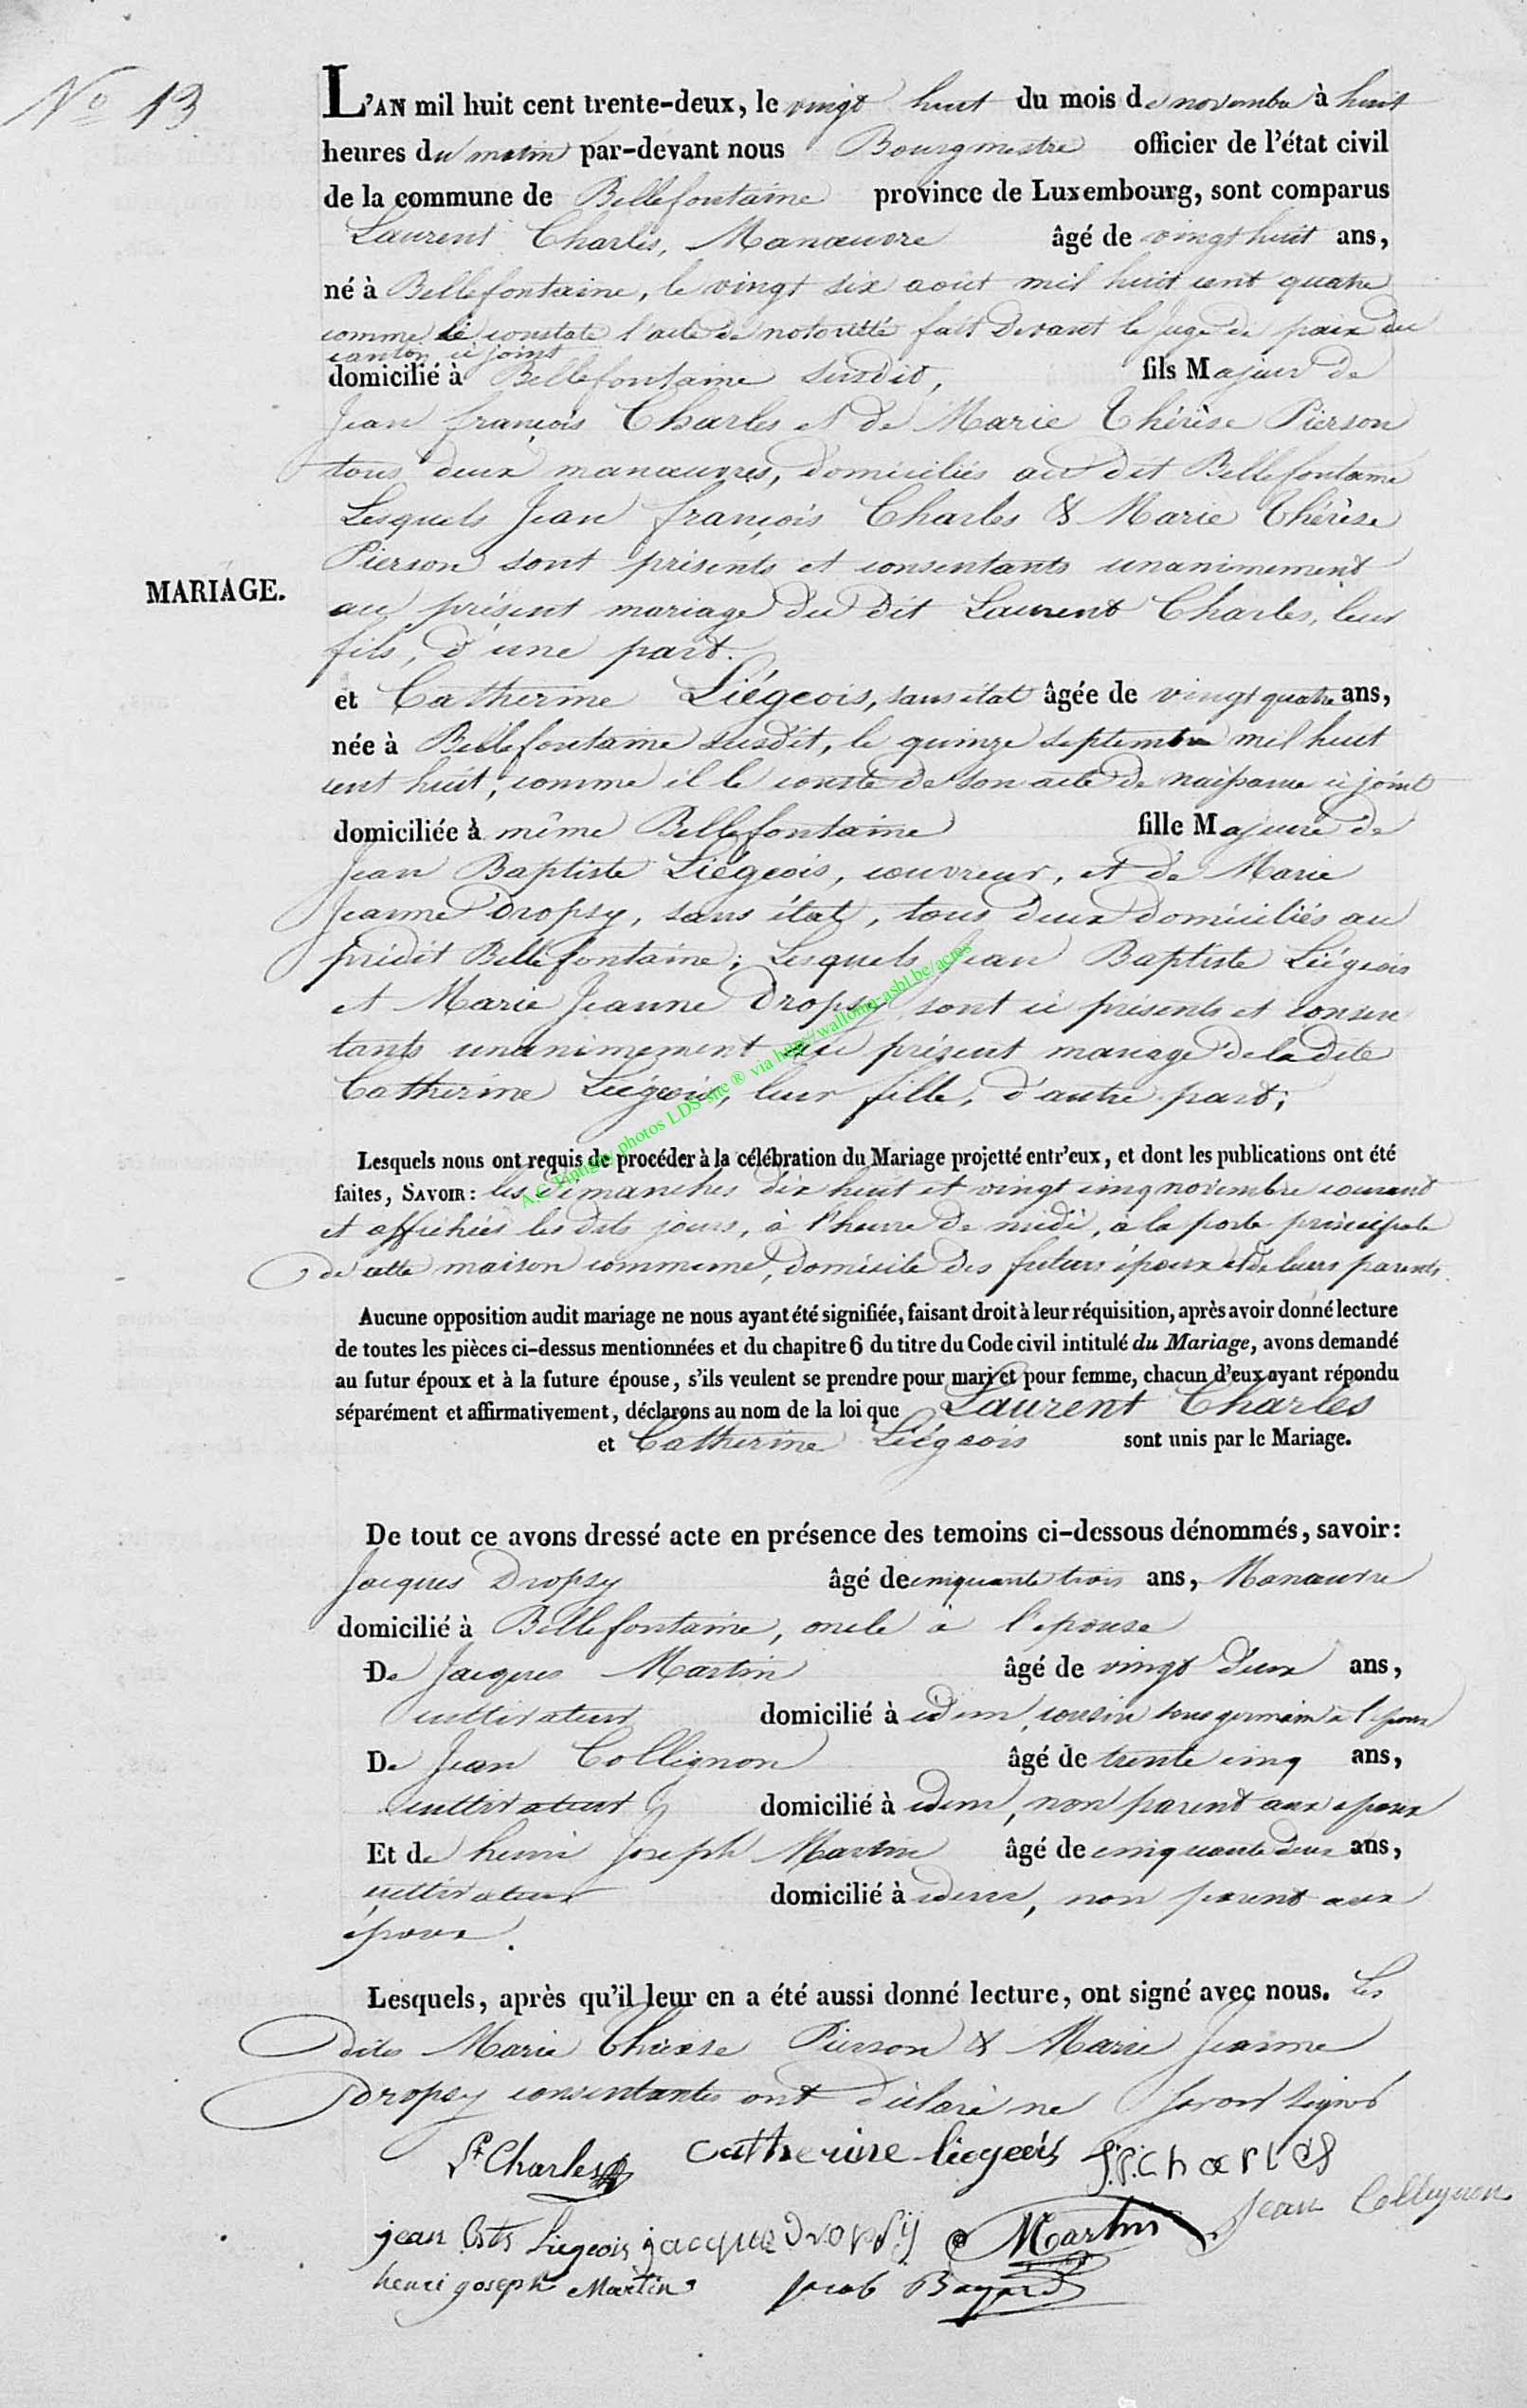 No 13.
L'AN mil huit cent trente-deux, le vingt huit du mois de novembre à huit
heures du matin par-devant nous Bourgmestre officier de l'état civil
de la commune de Bellefontaine province de Luxembourg, sont comparus
Laurent Charles, Manœuvre âgé de vingt huit ans,
né à Bellefontaine, le vingt six août mil huit cent quatre
comme le constate l'acte de notoriété fait devant le juge de paix du
canton ci joint
domicilié à Bellefontaine susdit, fils Majeur de
Jean françois Charles et de Marie Thérèse Pierson
tous deux manœuvres, domiciliés au dit Bellefontaine
Lesquels Jean françois Charles & Marie Thérèse
Pierson sont présents et consentants unanimement
MARIAGE.
au présent mariage du dit Laurent Charles, leur
fils, d'une part.
et Catherine Liégeois, sans état âgée de vingt quatre ans,
née à Bellefontaine susdit, le quinze septembre mil huit
cent huit, comme il le conste de son acte de naissance ci joint
domiciliée à même Bellefontaine fille Majeure de
Jean Baptiste Liégeois, couvreur, et de Marie
Jeanne Dropsy, sans état, tous deux domiciliés au
prédit Bellefontaine; Lesquels Jean Baptiste Liégeois
et Marie Jeanne Dropsy sont ici présents et consen
tants unanimement au présent mariage de la dite
Catherine Liégeois, leur fille, d'autre part;
A.C Tintigny photos LDS site ® via http://wallonia-asbl.be/actes
Lesquels nous ont requis de procéder à la célébration du Mariage projetté entr'eux, et dont les publications ont été
faites, SAVOIR: les dimanches dix huit et vingt cinq novembre courant
et affichées les dits jours, à l'heure de midi, à la porte principale
de cette maison commune, domicile des futurs époux et de leurs parents.
Aucune opposition audit mariage ne nous ayant été signifiée, faisant droit à leur réquisition, après avoir donné lecture
de toutes les pièces ci-dessus mentionnées et du chapitre 6 du titre du Code civil intitulé du Mariage, avons demandé
au futur époux et à la future épouse, s'ils veulent se prendre pour mari et pour femme, chacun d'eux ayant répondu
séparément et affirmativement, déclarons au nom de la loi que Laurent Charles
et Catherine Liégeois sont unis par le Mariage.
De tout ce avons dressé acte en présence des temoins ci-dessous dénommés, savoir:
Jacques Dropsy âgé de cinquante trois ans, Manœuvre
domicilié à Bellefontaine, oncle à l'epouse
De Jacques Martin âgé de vingt deux ans,
cultivateur domicilié à idem, cousin sous germain à l'epoux
De Jean Collignon âgé de trente cinq ans,
cultivateur domicilié à idem, non parent aux epoux
Et de henri Joseph Martin âgé de cinquante deux ans,
cultivateur domicilié à idem, non parent aux
epoux.
Lesquels, après qu'il leur en a été aussi donné lecture, ont signé avec nous. Les
dites Marie Thérèse Pierson & Marie Jeanne
Dropsy consentantes ont déclaré ne savoir signer
Lt Charles catherine liegeois J.F. Charles
jean Bts Liegeois jacque Dropsy Martin Jean Collignon
henri joseph Martin Jacob